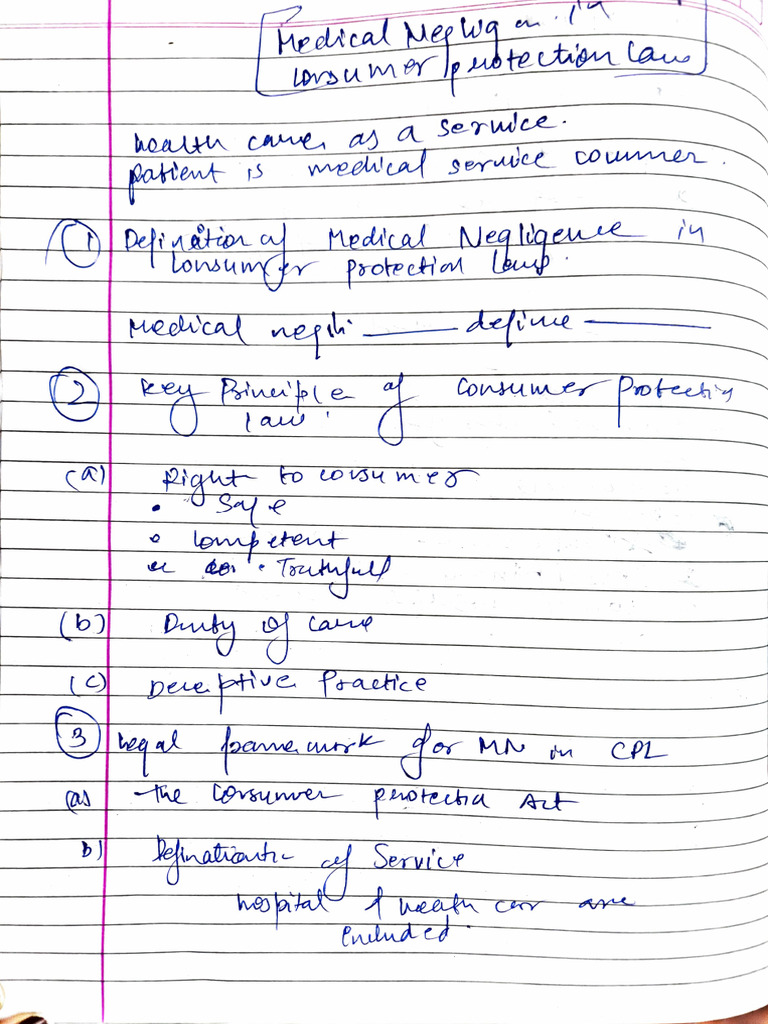 Medical Neglig en. in
consumer protection law
health care as a service.
patient is medical service counmer.
(1) Defination of Medical Negligence in
consumer protection law.
Medical negli. ——— define ———
(2) Key Principle of consumer Protection
law.
(a) Right to consumer
• Safe
• Competent
• Truthfull
(b) Duty of care
(c) Deceptive Practice
(3) Legal framework for MN in CPL
(a) The Consumer protection Act
b) Defination of Service
hospital & health car are
included.